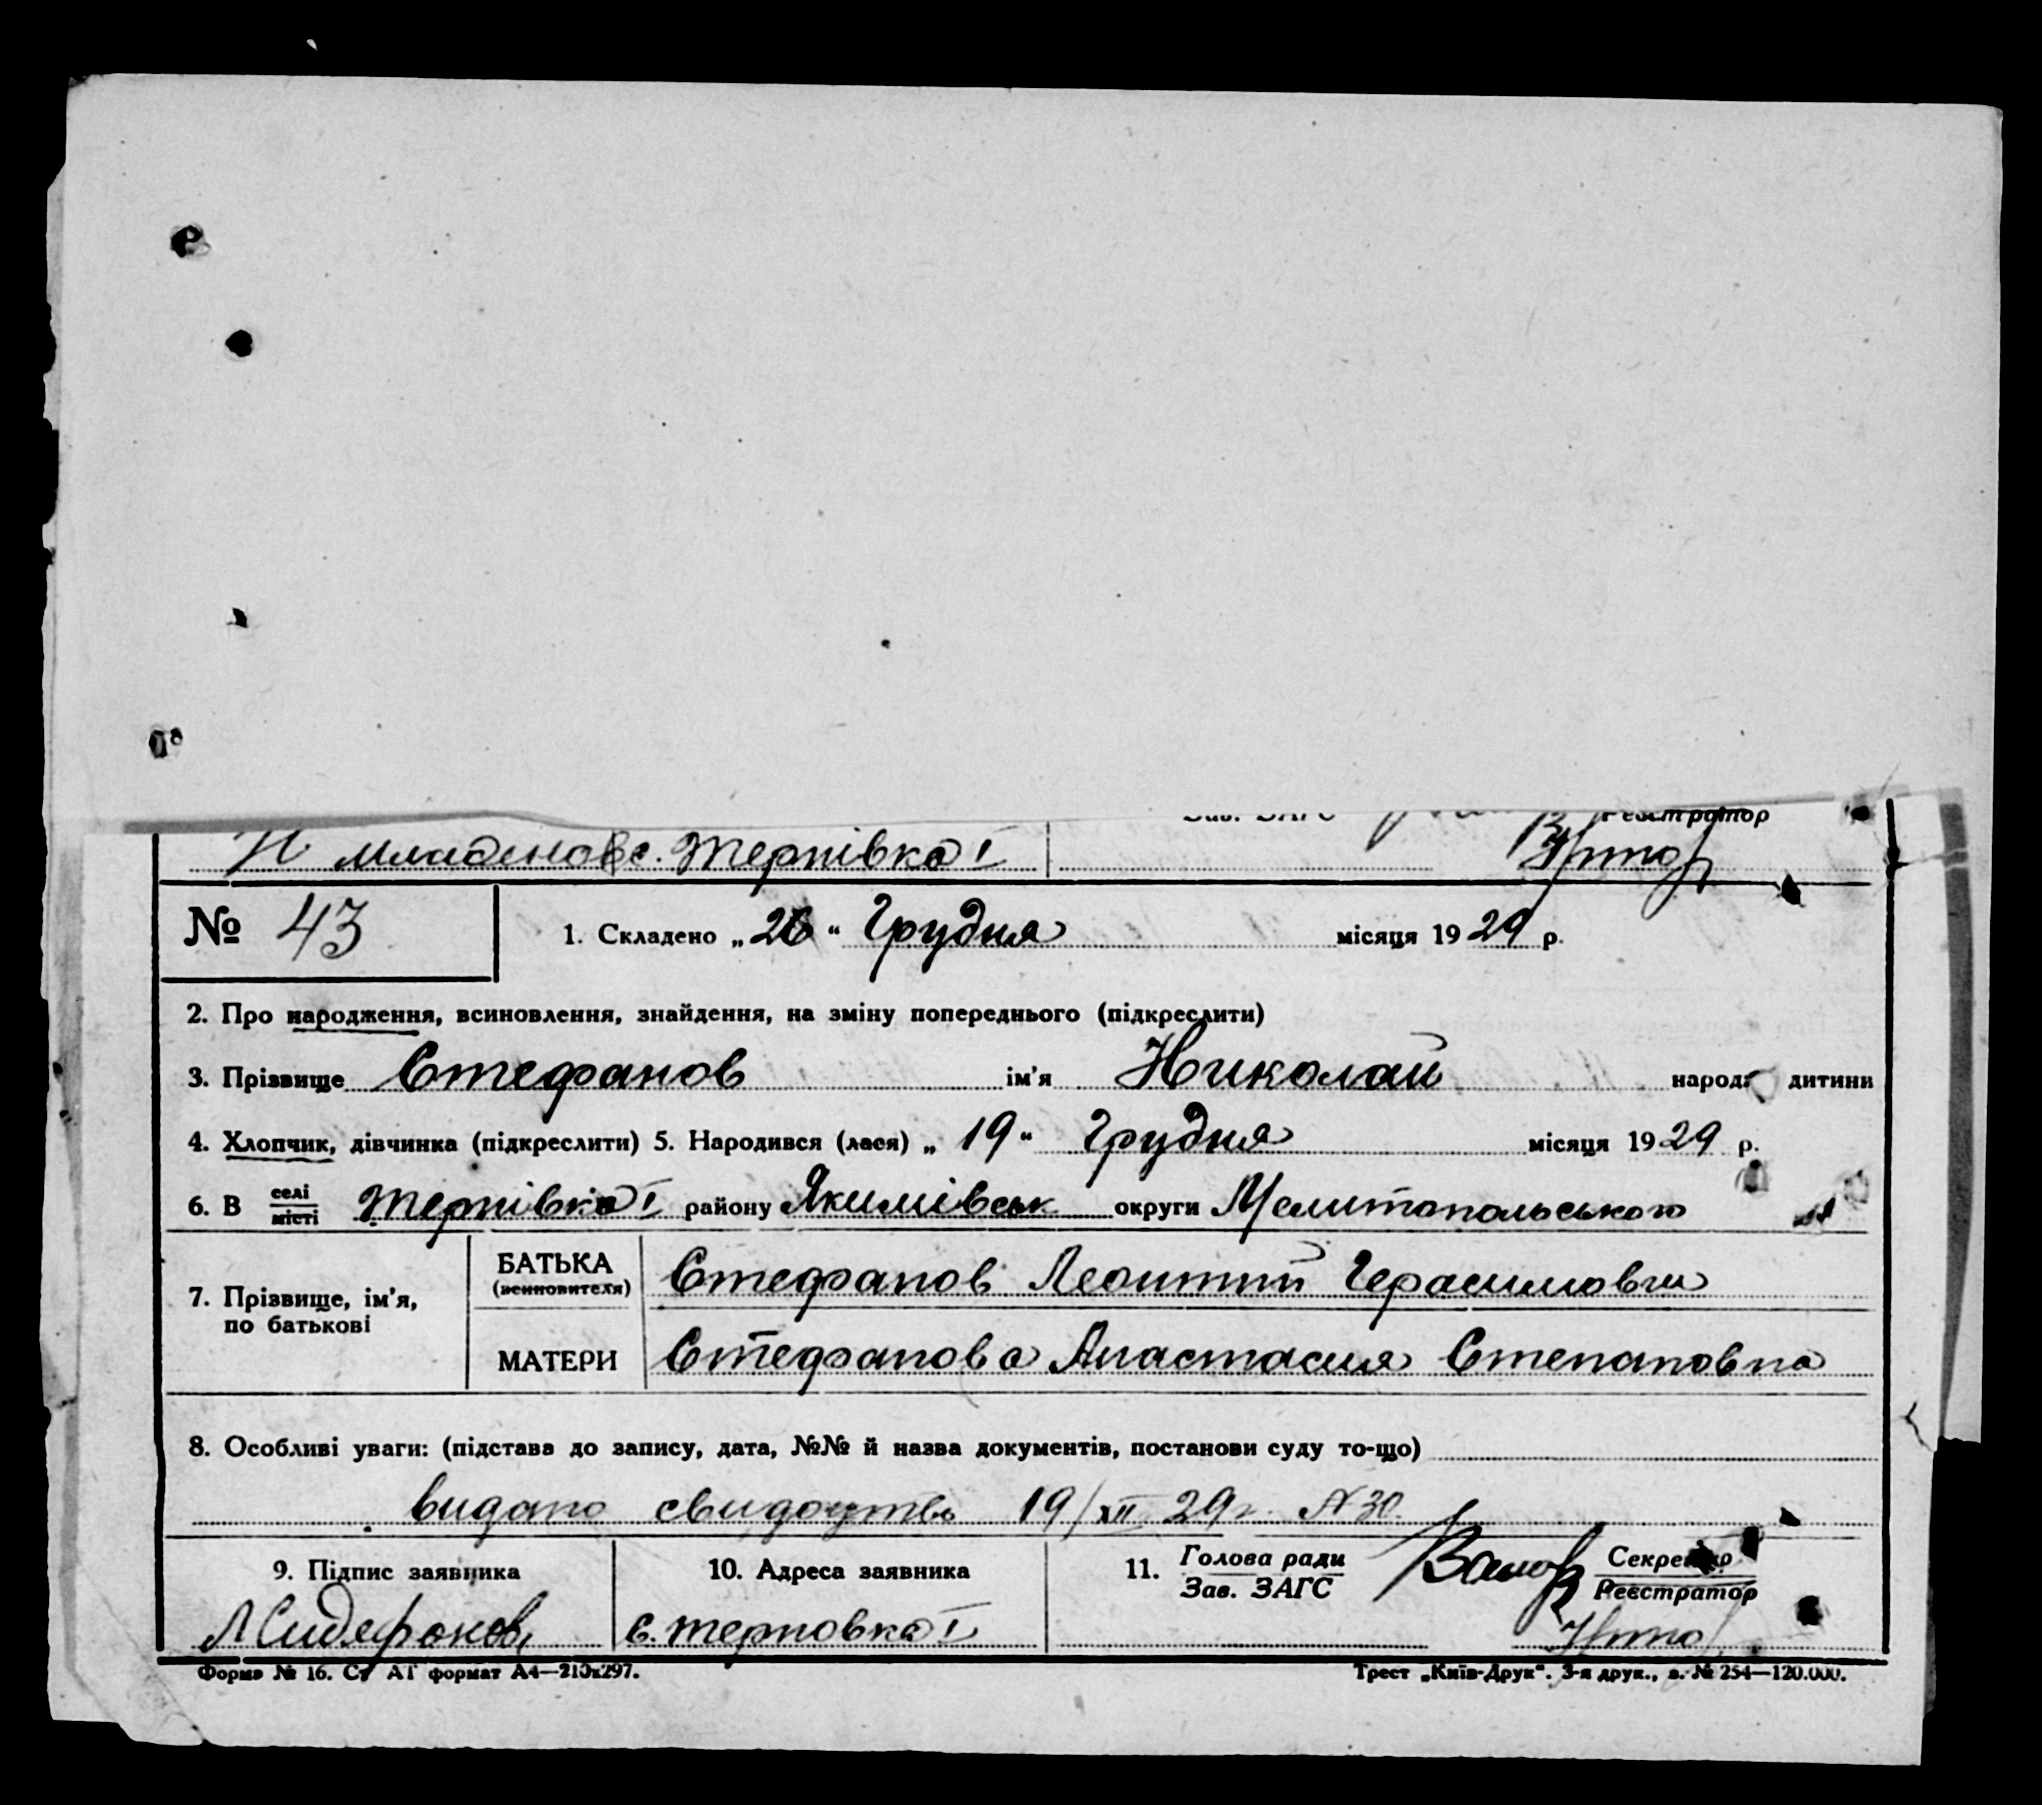 Реєстратор
Н Младенов с. Терпівка I
№ 43
1. Складено „26“ Грудня місяця 1929 р.
2. Про народження, всиновлення, знайдення, на зміну попереднього (підкреслити)
3. Прізвище Стефанов ім'я Николай народ. дитини
4. Хлопчик, дівчинка (підкреслити) 5. Народився (лася) „19“ Грудня місяця 1929 р.
6. В селі місті Терпівка I району Якимівськ округи Мелитопольського
7. Прізвище, ім'я, по батькові
БАТЬКА (всиновителя) Стефанов Леонтий Герасимович
МАТЕРИ Стефанова Анастасия Степановна
8. Особливі уваги: (підстава до запису, дата, №№ й назва документів, постанови суду то-що)
видано свидоцтво 19/XII 29 г. N 30.
9. Підпис заявника 10. Адреса заявника 11. Голова ради Зав. ЗАГС Секретар Реєстратор
с. Терповка I
Форма № 16. Ст АТ формат А4—210х297. Трест „Київ-Друк“. 3-я друк., з. № 254—120.000.